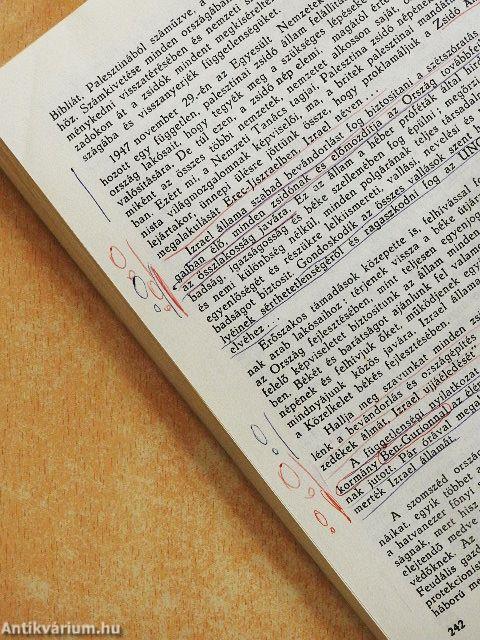 Bibliát. Palesztinából száműzve, a
höz. Számkivetése minden országában
ménykedni visszatérésében és nemzeti s
zadokon át a zsidók mindent megkíséreltek
szágába és visszanyerjék függetlenségüket.
1947 november 29-én az Egyesült Nemzetek
hozott egy független, palesztinai zsidó állam felállítás
ország lakosait, hogy tegyék meg a szükséges lépéseket
valósítására. De túl ezen, a zsidó nép elemi, magától érte
miként az összes többi nemzetek, nemzetet alkosson saját,
ban. Ezért mi, a Nemzeti Tanács tagjai, Palesztina zsidó népének
nista világmozgalomnak képviselői, ma, a britek palesztinai mandátu
lejártakor, ünnepi ülésre jöttünk össze, hogy proklamáljuk a Zsidó
megalakulását Erec-Jiszraelben: Izrael néven.
Izrael állama szabad bevándorlást fog biztosítani a szétszórtás
galban élő minden zsidónak, s előmozdítja az Ország továbbfe
az összlakosság javára. Ez az állam a héber Próféták által hird
badság, igazságosság és béke szellemében fog épülni, megőrz
és nemi különbség nélkül, minden polgárának teljes társadal
egyenlőségét és részükre lelkiismereti, vallási, nevelési és
badságot biztosít. Gondoskodik az összes vallások szent
lyeinek sérthetetlenségéről és ragaszkodni fog az UN
elvéhez.
Erőszakos támadások közepette is, felhívással f
nak arab lakosaihoz: térjenek vissza a béke útjai
az Ország fejlesztésében, mint teljesen egyenjog
felelő képviseletet biztosítunk az állam minden
ben. Békét és barátságot ajánlunk fel valame
népének és felhívjuk őket, működjenek együ
mindnyájunk közös javára. Izrael állama
a Közelkelet békés fejlesztésében.
Hallja meg szavunkat minden zs
lénk a bevándorlás és országépítés
zedékek álmát, Izrael újjáéledését
A függetlenségi nyilatkozat
kormány Ben-Gurionnal az élén
nak jutott. Pár órával mega
merték Izrael államát.
A szomszéd ország
náikat, egyik többet a
a hatvanezer főnyi
ságnak, mert hisz
elejtendő medve
védőknek. Az
Feudális gazd
protekcionis
háború me
242
Antikvárium.hu